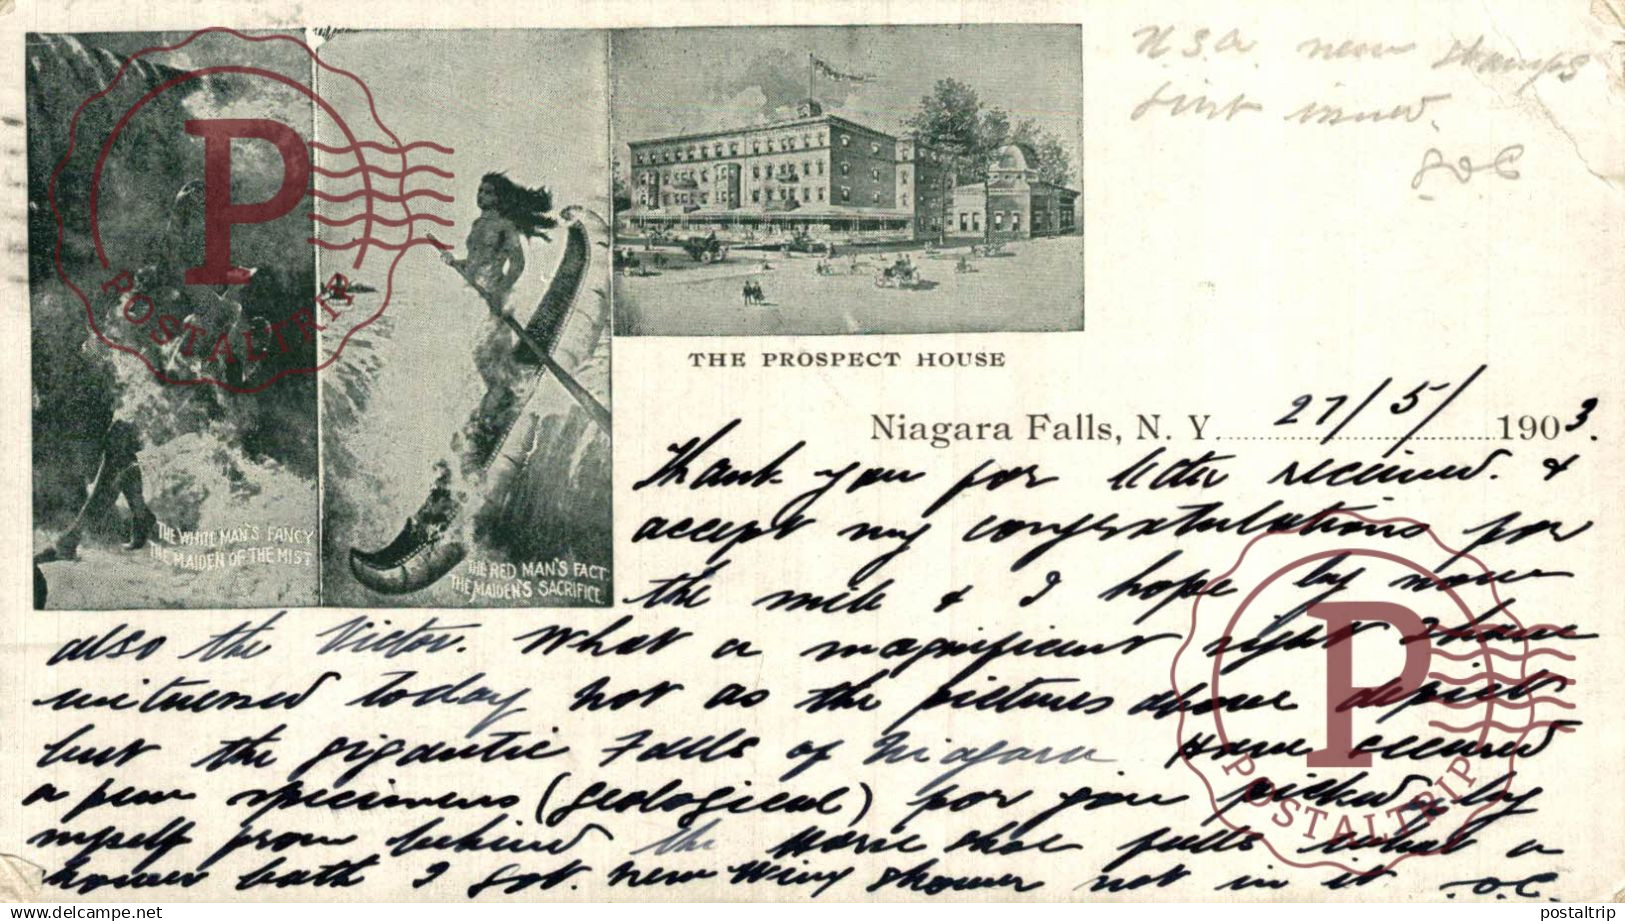 U.S.A. new stamps
first issued.
THE WHITE MAN'S FANCY
THE MAIDEN OF THE MIST
THE RED MAN'S FACT
THE MAIDEN'S SACRIFICE.
THE PROSPECT HOUSE
Niagara Falls, N. Y. 27/5/1903.
Thank you for letter received. &
accept my congratulations for
the mile & I hope by now
also the Victor. What a magnificent sight I have
witnessed today not as the pictures above depict
but the gigantic Falls of Niagara Have secured
a few specimens (geological) for you picked by
myself from behind the Horse shoe falls what a
shower bath I got. New shower not in it. O.C.
P
POSTALTRIP
P
POSTALTRIP
postaltrip.com
postaltrip